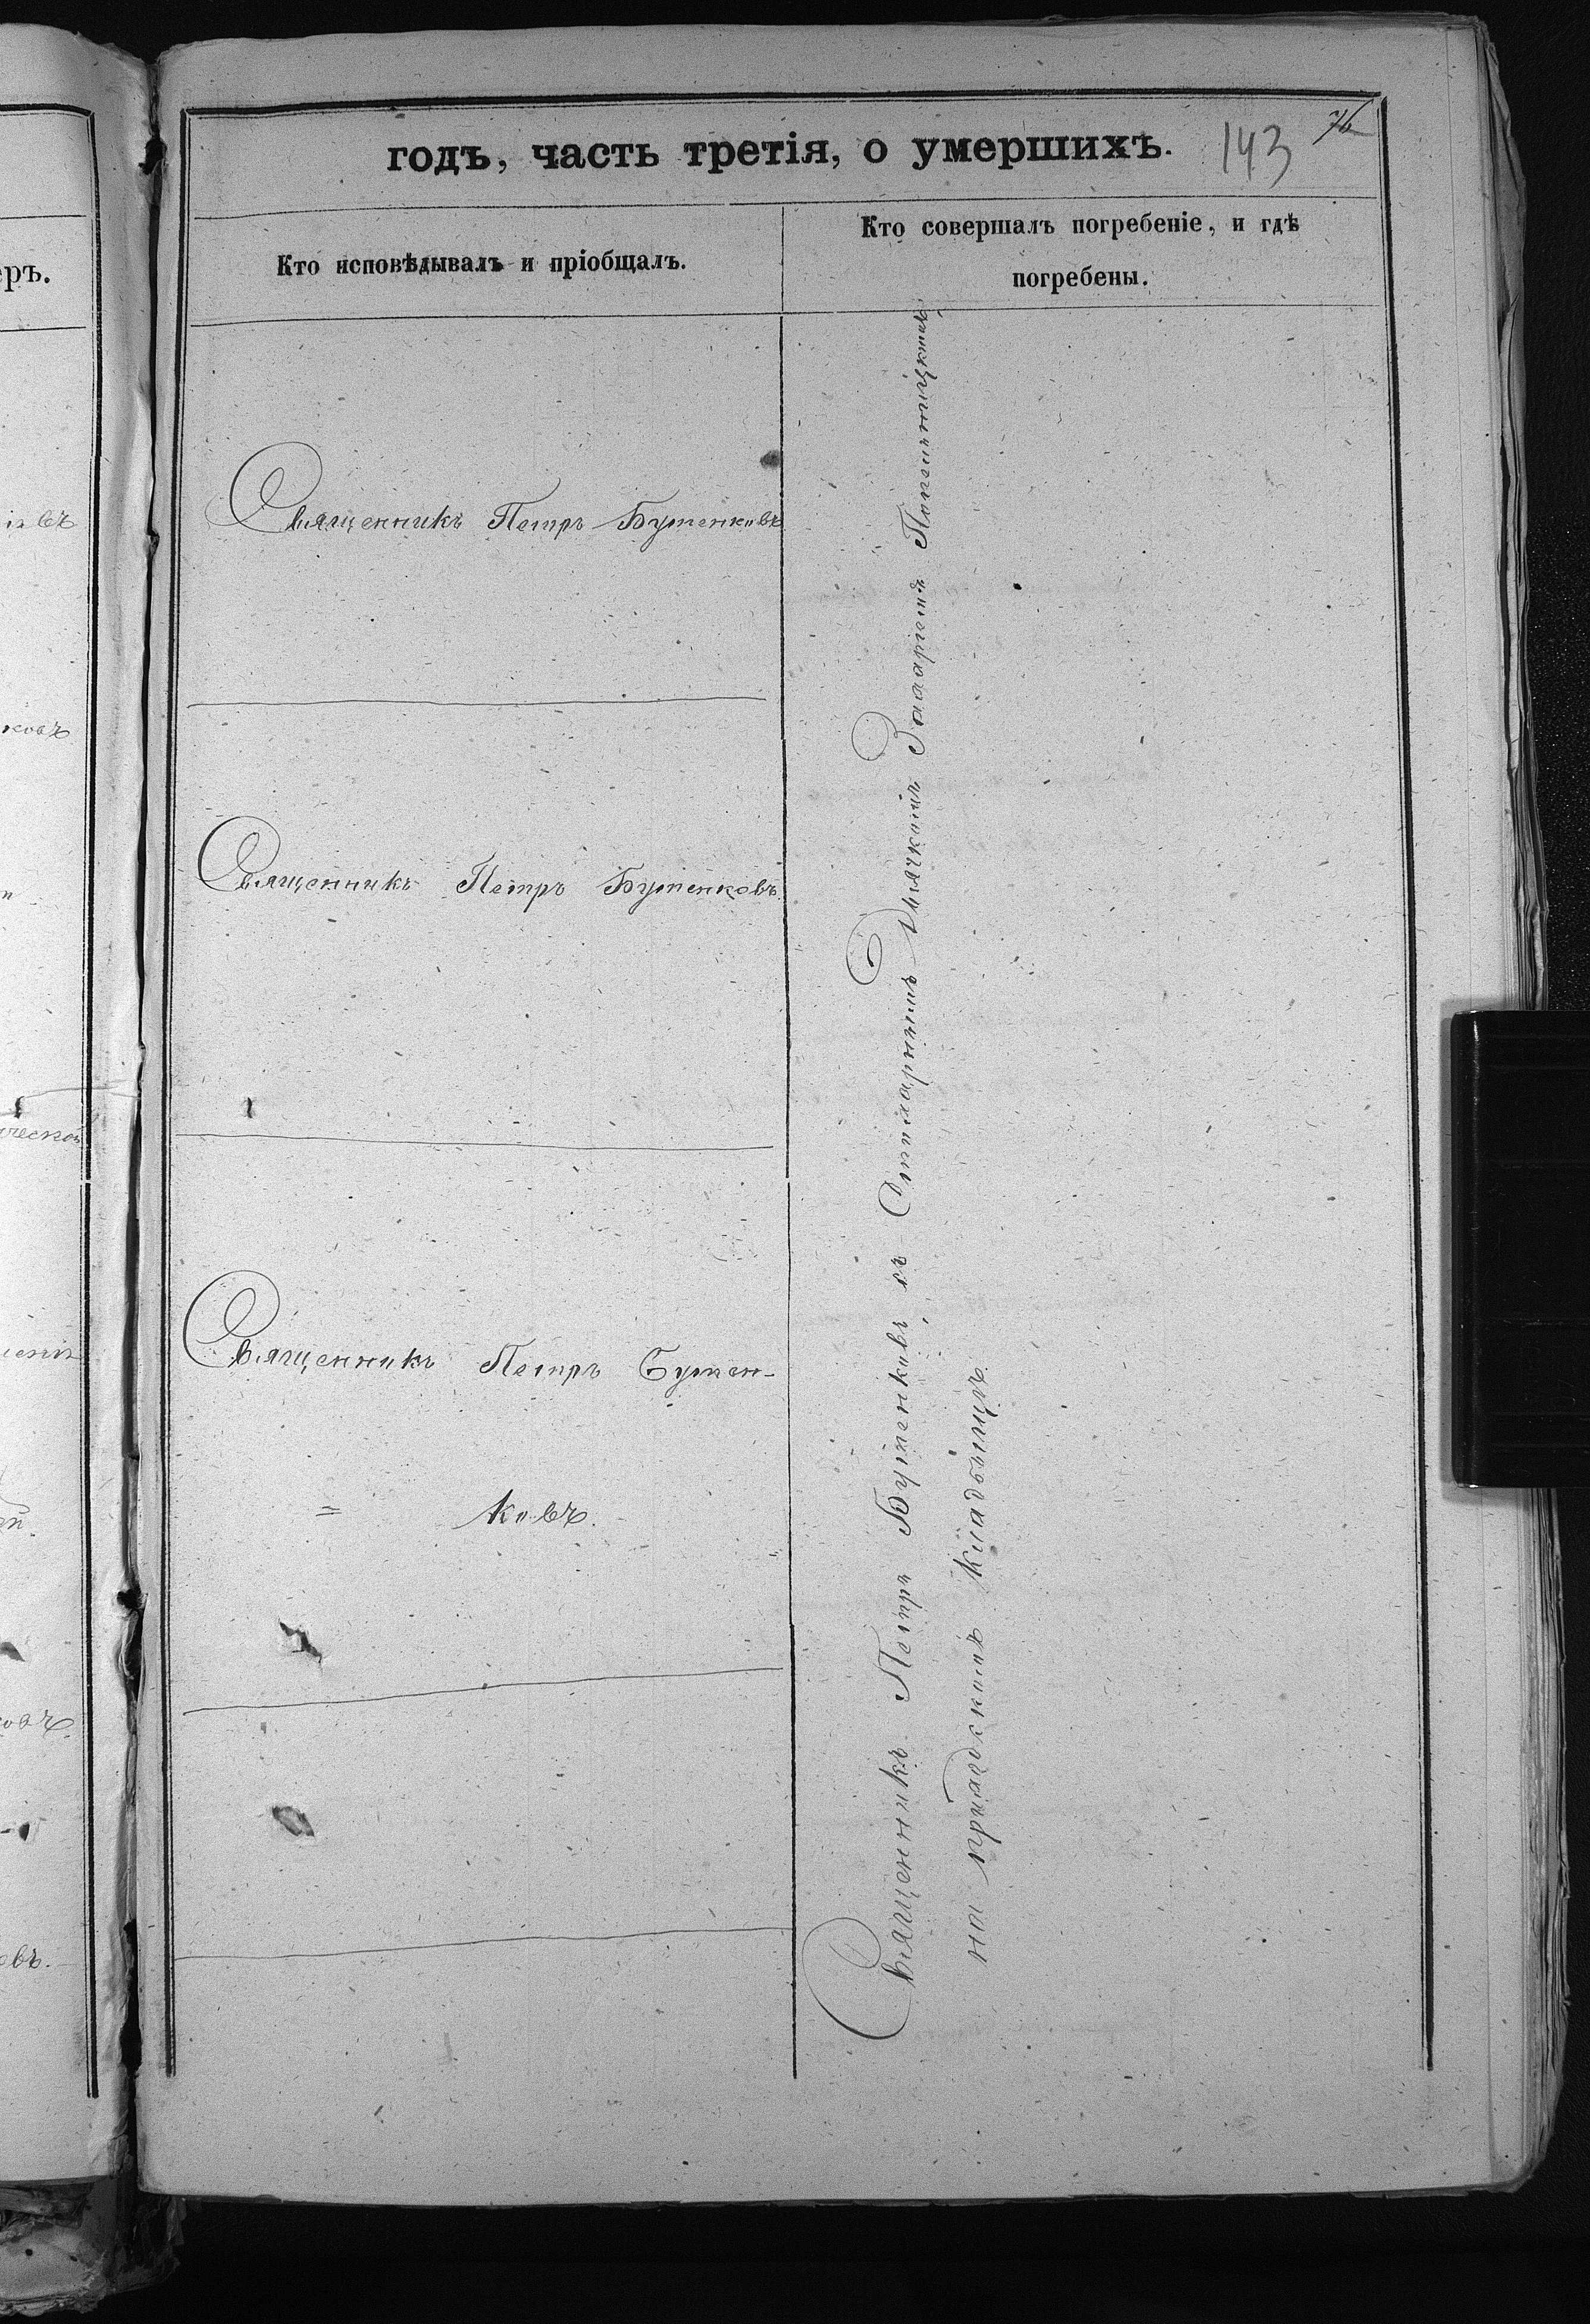 годъ, часть третія, о умершихъ.
143
76
Кто исповѣдывалъ и пріобщалъ.
Кто совершалъ погребеніе, и гдѣ
погребены.
Священникъ Петръ Бутенковъ
Священникъ Петръ Бутенковъ.
Священникъ Петръ Бутен-
= ковъ.
Священникъ Петръ Бутенковъ съ Дьячкомъ
на приходскомъ кладбищѣ.
еръ.
овъ.